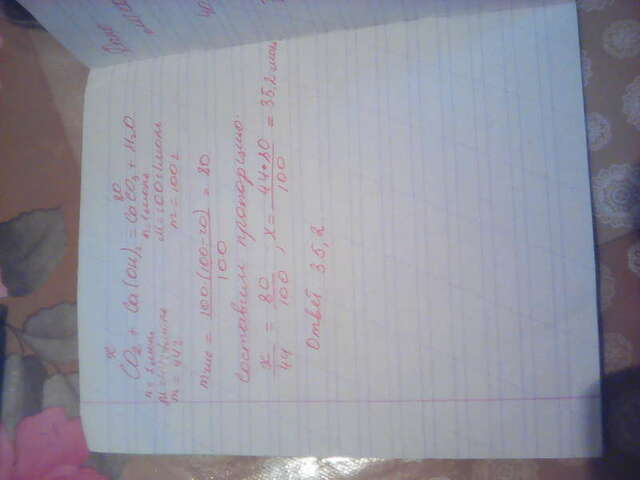 x 80
CO₂ + Ca(OH)₂ = CaCO₃ + H₂O
n=1моль n=1моль
M=100г/моль
m=44г m=100г
100(100-20)/100 = 80
Составим пропорцию:
x/44 = 80/100, x = 44*80/100 = 35,2
Ответ 35,2